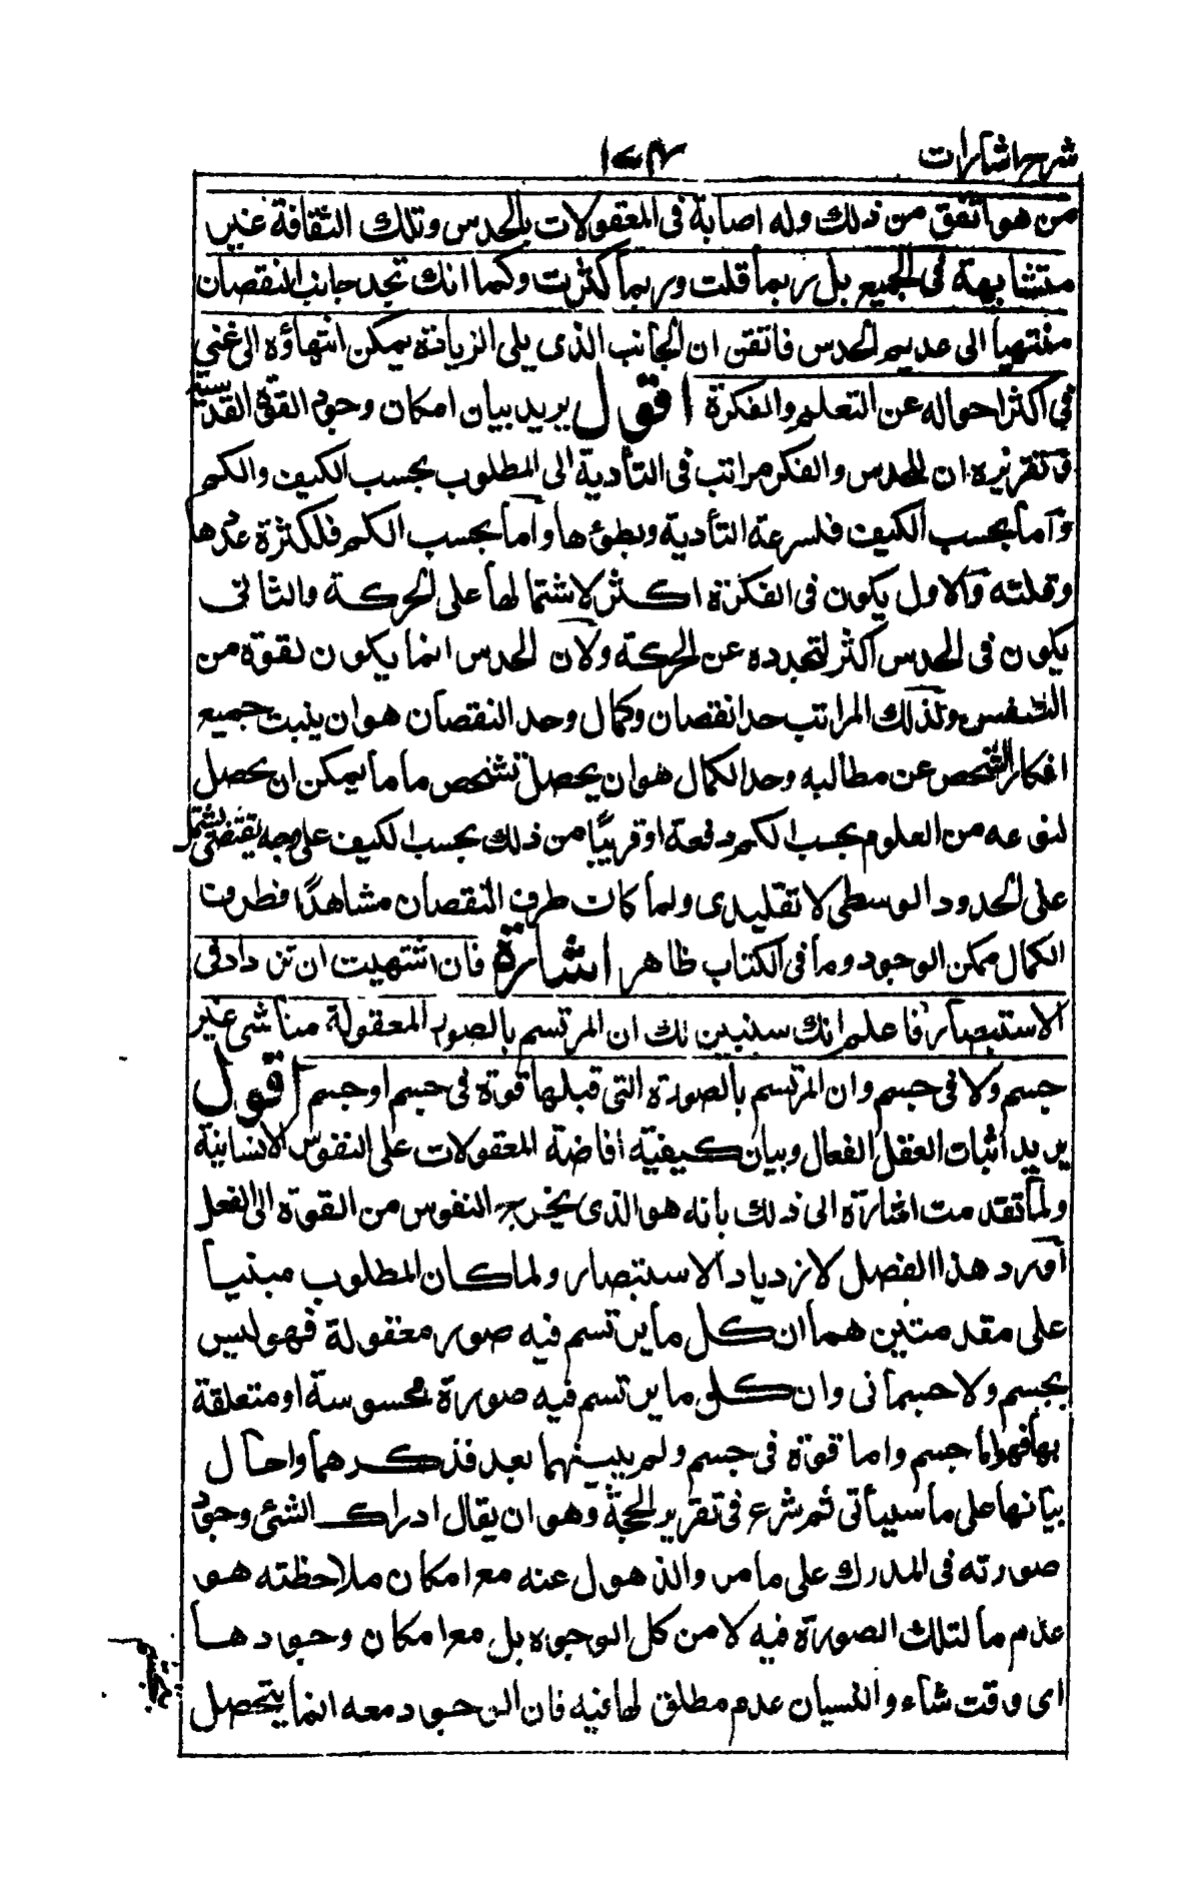 شرح اشارات
من هو اثقف من ذلك وله اصابة فى المعقولات بالحدس وتلك الثقافة غير
متشابهة فى الجميع بل ربما قلت وربما كثرت وكما انك تجد جانب النقصان
منتهيا الى عديم الحدس فاتقن ان الجانب الذى يلى الزيادة يمكن انتهاؤه الى غنى
فى اكثر احواله عن التعلم والفكرة اقول يريد بيان امكان وجود القوة القدسية
وتقريره ان للحدس والفكر مراتب فى التأدية الى المطلوب بحسب الكيف والكم
وآما بحسب الكيف فلسرعة التأدية وبطؤها وآما بحسب الكم فلكثرة عددها
وقلته والاول يكون فى الفكرة اكثر لاشتمالها على الحركة والثانى
يكون فى الحدس اكثر لتجرده عن الحركة ولان الحدس انما يكون لقوة من
النفس ولذلك المراتب حدا نقصان وكمال وحد النقصان هو ان ينبت جميع
افكار الشخص عن مطالبه وحد الكمال هو ان يحصل لشخص ما ما يمكن ان يحصل
لنوعه من العلوم بحسب الكم دفعة او قريبًا من ذلك بحسب الكيف على وجه يقتضى يشتمل
على الحدود الوسطى لا تقليدى ولما كان طرف النقصان مشاهدًا فطرف
الكمال ممكن الوجود وما فى الكتاب ظاهر اشارة فان اشتهيت ان تزداد فى
الاستبصار فاعلم انك ستبين لك ان المرتسم بالصور المعقولة منا شى غير
جسم ولا فى جسم وان المرتسم بالصورة التى قبلها قوة فى جسم او جسم اقول
يريد اثبات العقل الفعال وبيان كيفية افاضة المعقولات على النفوس الانسانية
ولما تقدمت اشارة الى ذلك بانه هو الذى يخرج النفوس من القوة الى الفعل
اورد هذا الفصل لازدياد الاستبصار ولما كان المطلوب مبنيا
على مقدمتين هما ان كل ما يرتسم فيه صورة معقولة فهو ليس
بجسم ولا جسمانى وان كل ما يرتسم فيه صورة محسوسة او متعلقة
بها فهو اما جسم واما قوة فى جسم ولم يبينهما بعد فذكرهما واحال
بيانها على ما سيأتى ثم شرع فى تقرير الحجة وهو ان يقال ادراك الشئ وجود
صورته فى المدرك على ما مر والذهول عنه مع امكان ملاحظته هو
عدم ما لتلك الصورة فيه لا من كل الوجوه بل مع امكان وجودها
اى وقت شاء والنسيان عدم مطلق لها فيه فان الوجود معه انما يتحصل